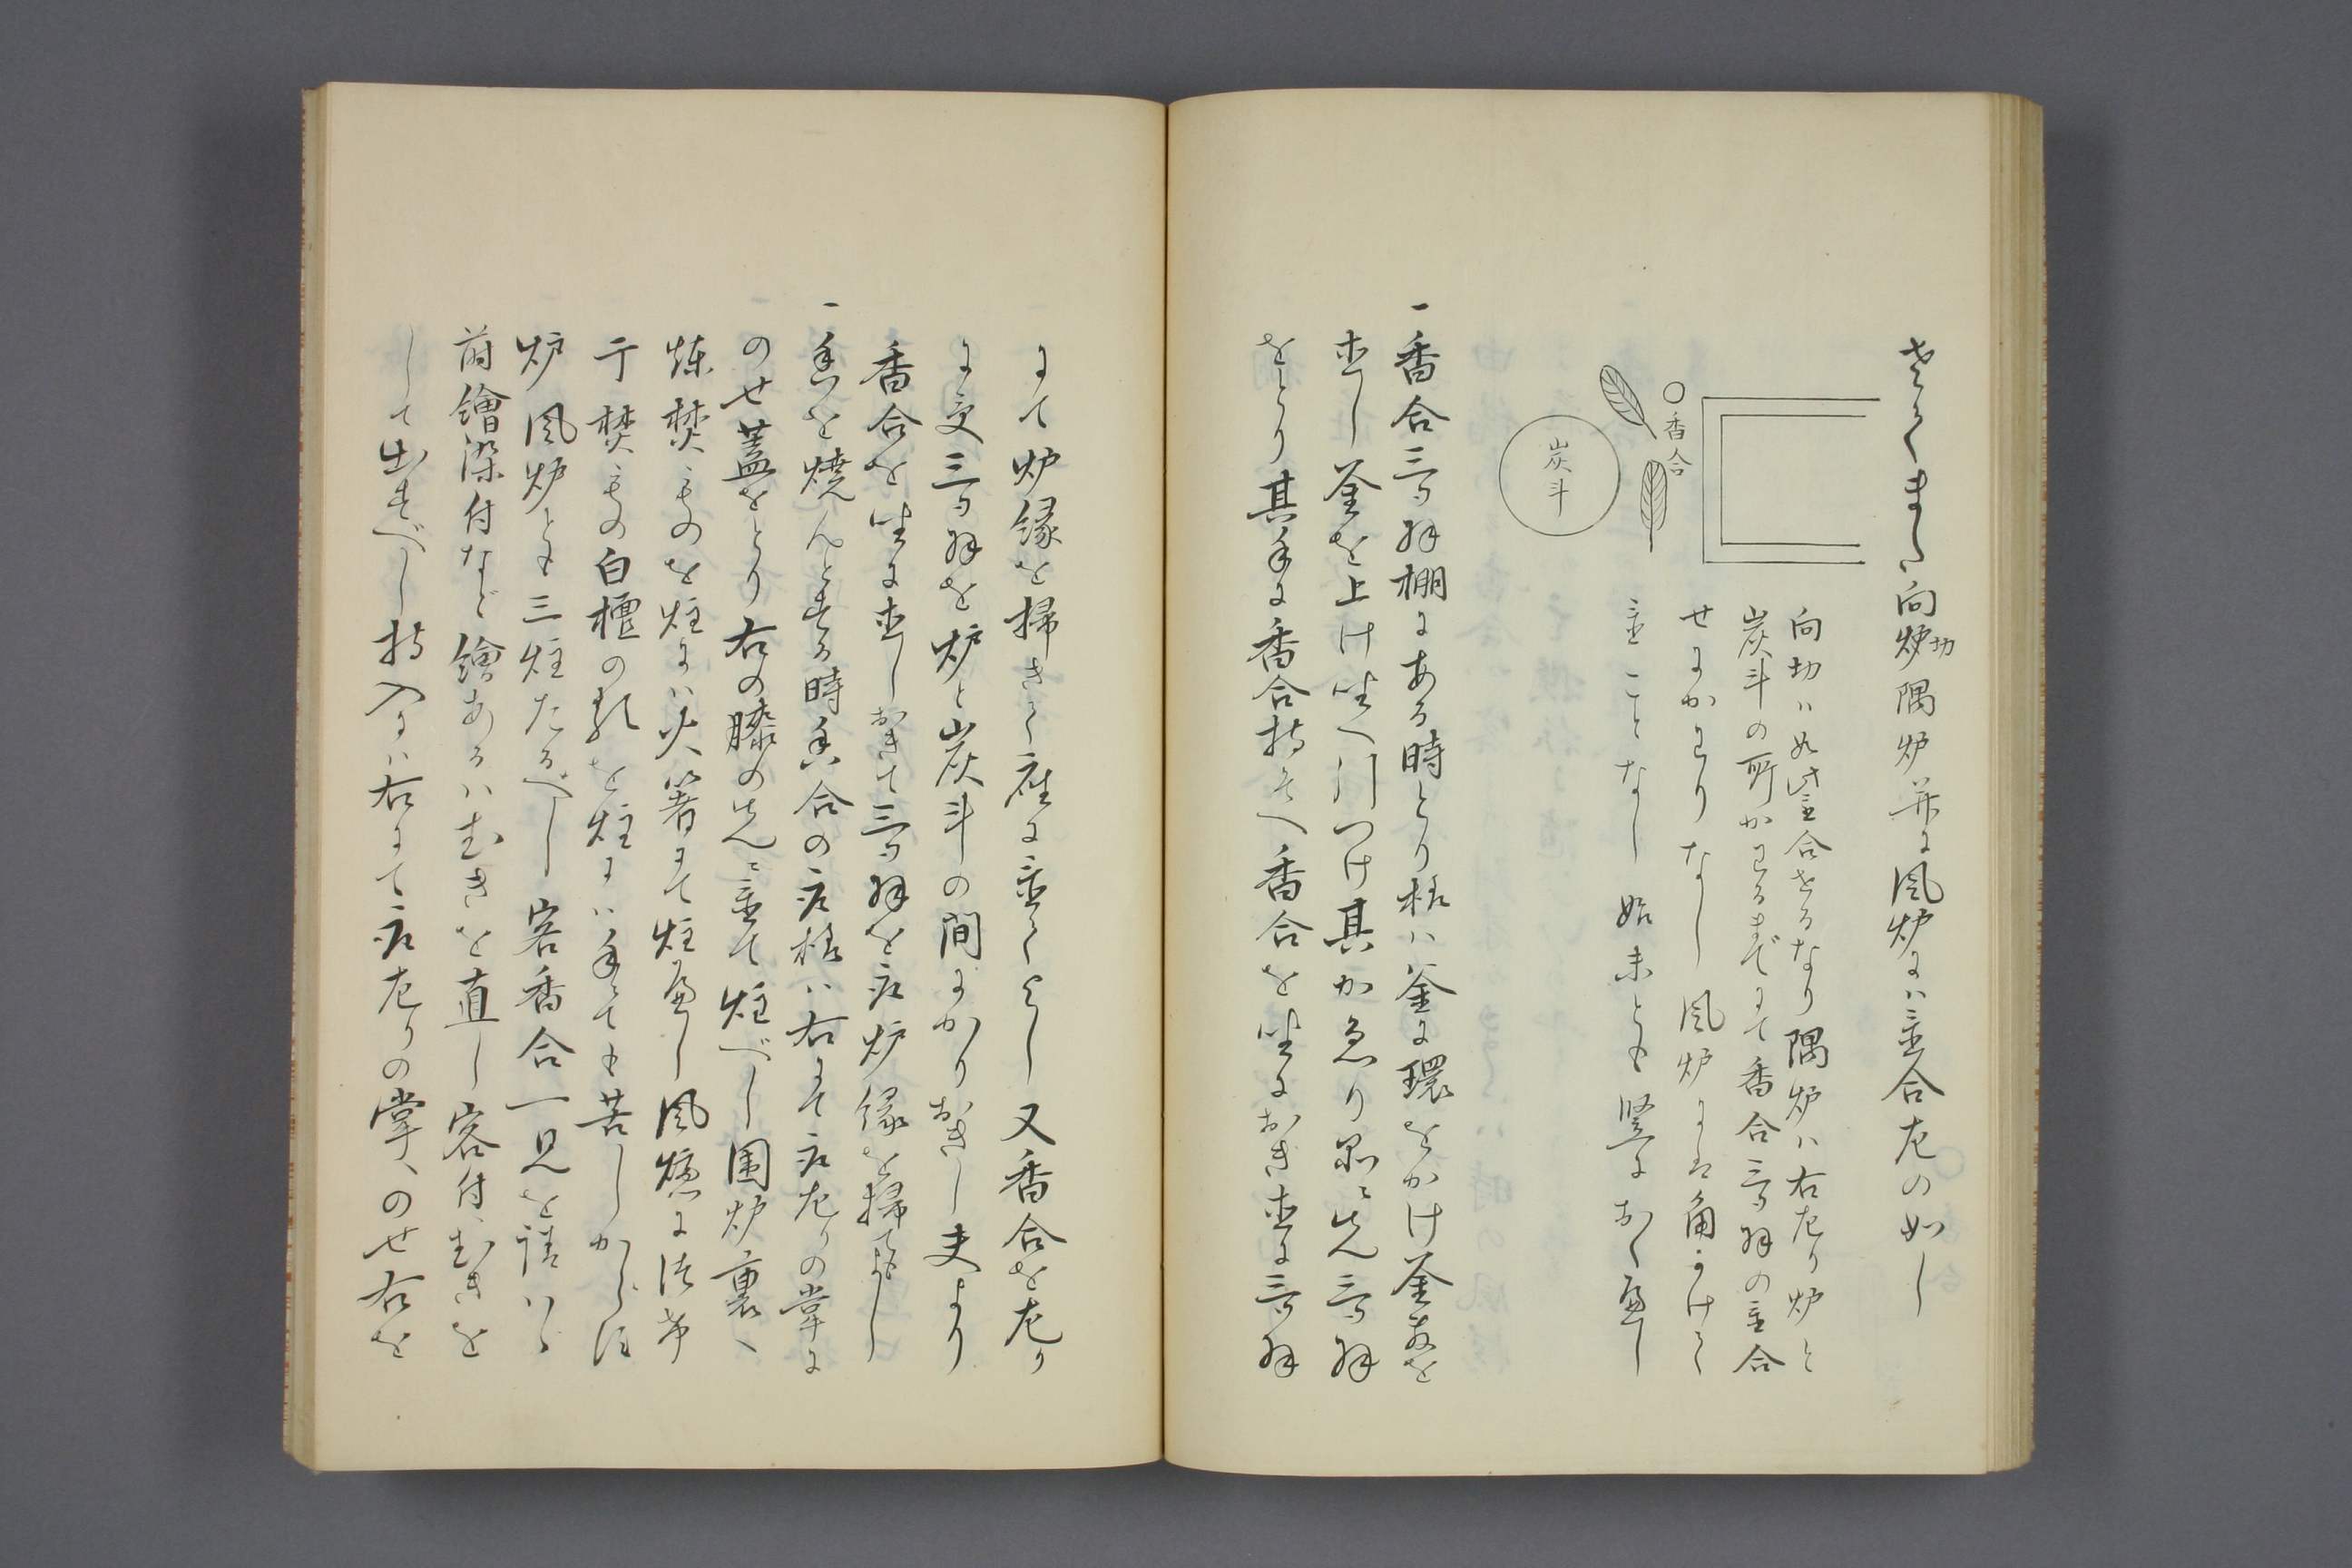 向炉切隅炉并ニ風炉には置合左の如し
香合
炭斗
向切ハ如此置合せるなり隅炉ハ右左り炉と
炭斗の所かわるまでにて香合三ツ羽の置合
せにかわりなし風炉には角かけて
置ことなし始末とも竪におくべし
一香合三ツ羽棚にある時とり様ハ釜に環をかけ釜敷を
出し釜を上け坐へ引つけ其かゑり足に先三ツ羽
をとり其手に香合持そへ香合を坐におき直に三ツ羽
にて炉縁を掃きて座に置てよし又香合を左り
に受三ツ羽を炉と炭斗の間にかりおきし夫より
香合を坐に直しおきて三ツ羽を取炉縁を掃てもよし
一香を焼んとする時香合の取様ハ右にて取左りの掌に
のせ蓋をとり右の膝の先に置て炷べし囲炉裏へ
煉焚ものを炷にハ火箸にて炷べし風爐に
焚ものの白檀の類を炷にハ手にても苦しからす
炉風炉とも三炷たるべし客香合一見を請ハゝ
蒔繪染付など繪あるハむきを直し客付へむきを
して出すべし持入にハ右にて取左りの掌へのせ右を